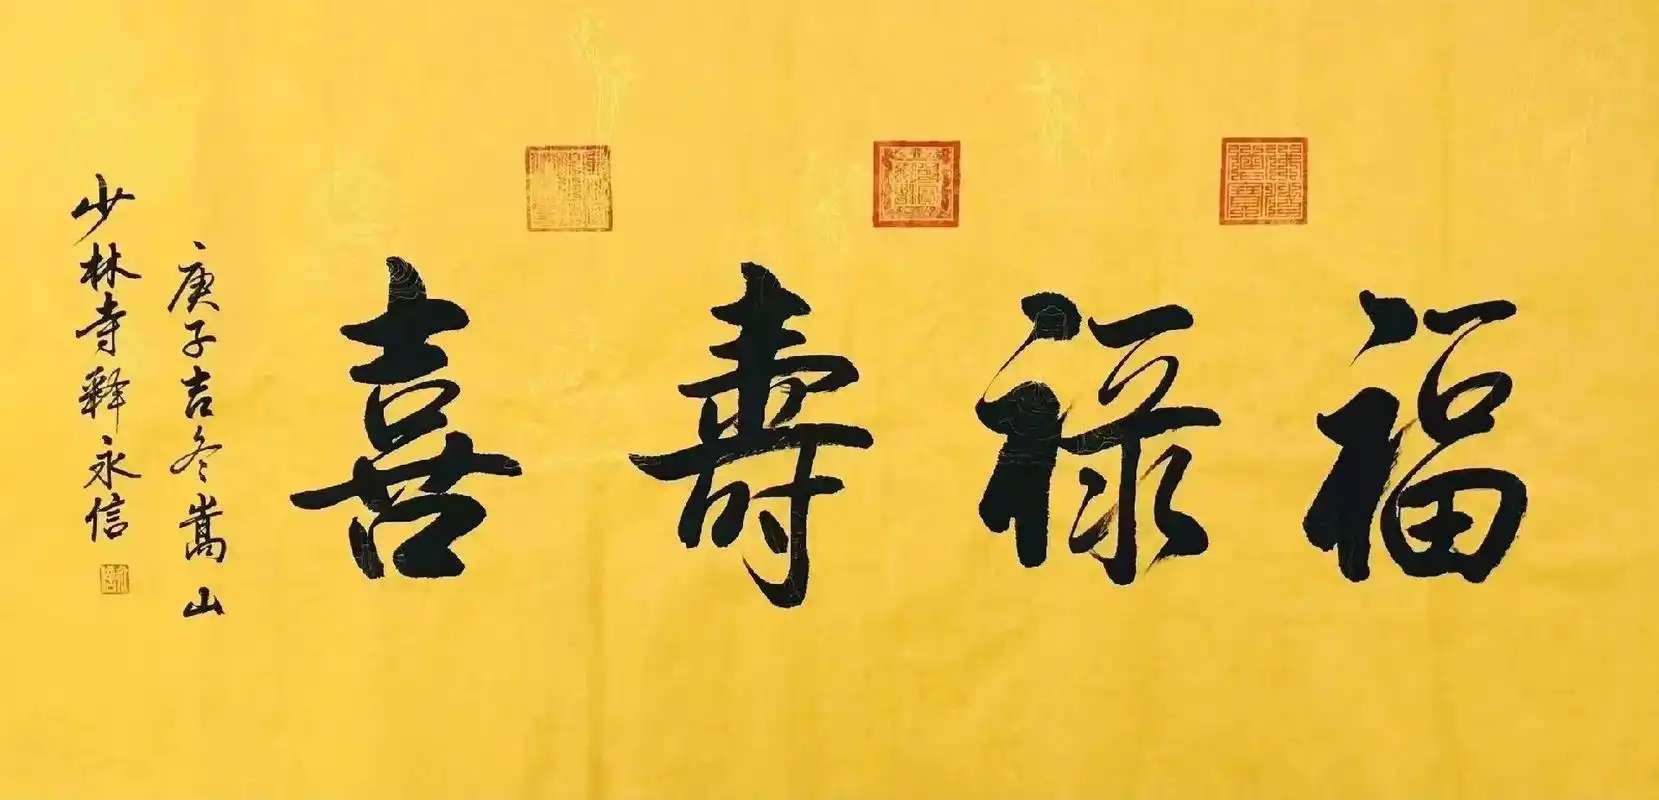 福禄寿喜
庚子吉冬嵩山
少林寺释永信